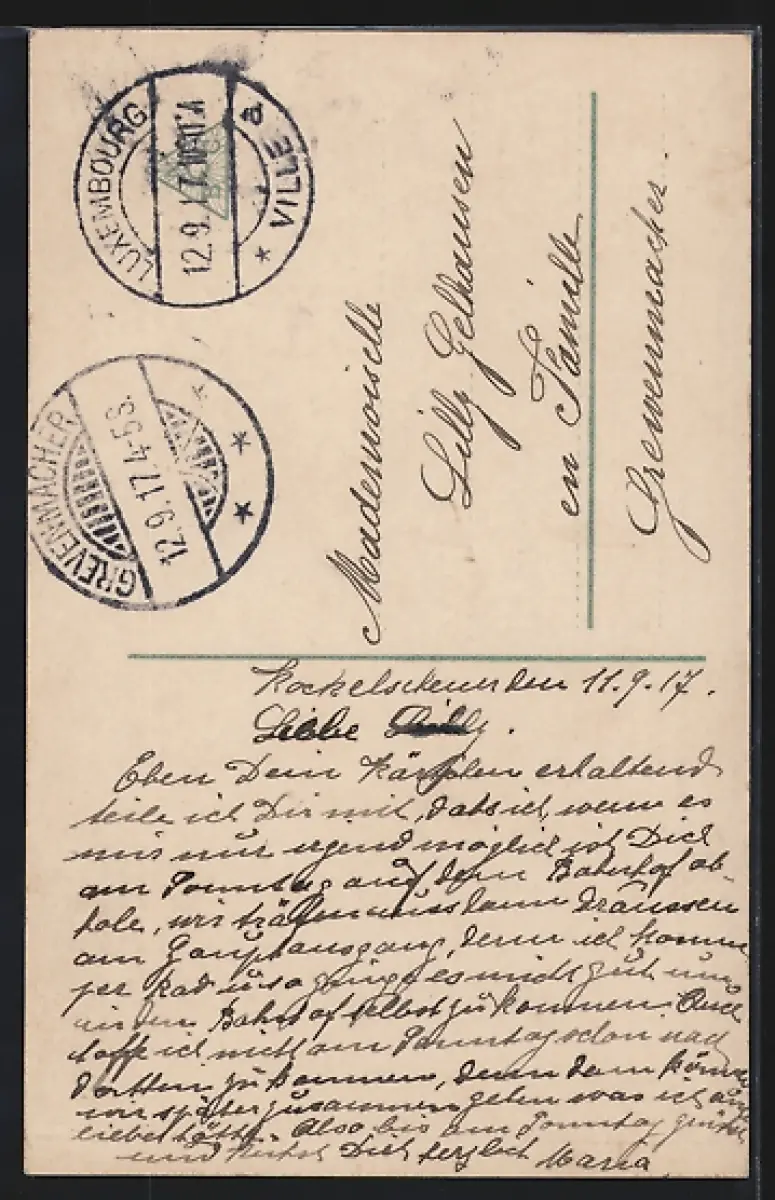 LUXEMBOURG VILLE
a
12.9.17. 10-11 V.
GREVENMACHER
12.9.17. 4-5 S.
Mademoiselle
Lilly Gelhausen
en Famille
Grevenmacher.
Kockelscheuer den 11.9.17.
Liebe Lilly.
Eben Dein Kärtchen erhaltend
teile ich Dir mit, dass ich, wenn es
mir nur irgend möglich ist Dich
am Sonntag auf dem Bahnhof ab-
hole, wir träfen uns dann draussen
am Hauptausgang, denn ich komme
per Rad u. so ginge es nicht gut um
in den Bahnhof selbst zu kommen. Auch
hoffe ich nicht am Samstag schon nach
dorthin zu kommen, denn dann können
wir später zusammen gehen was ich auch
lieber hätte. Also bis am Sonntag grüsst
und küsst Dich herzlich Maria